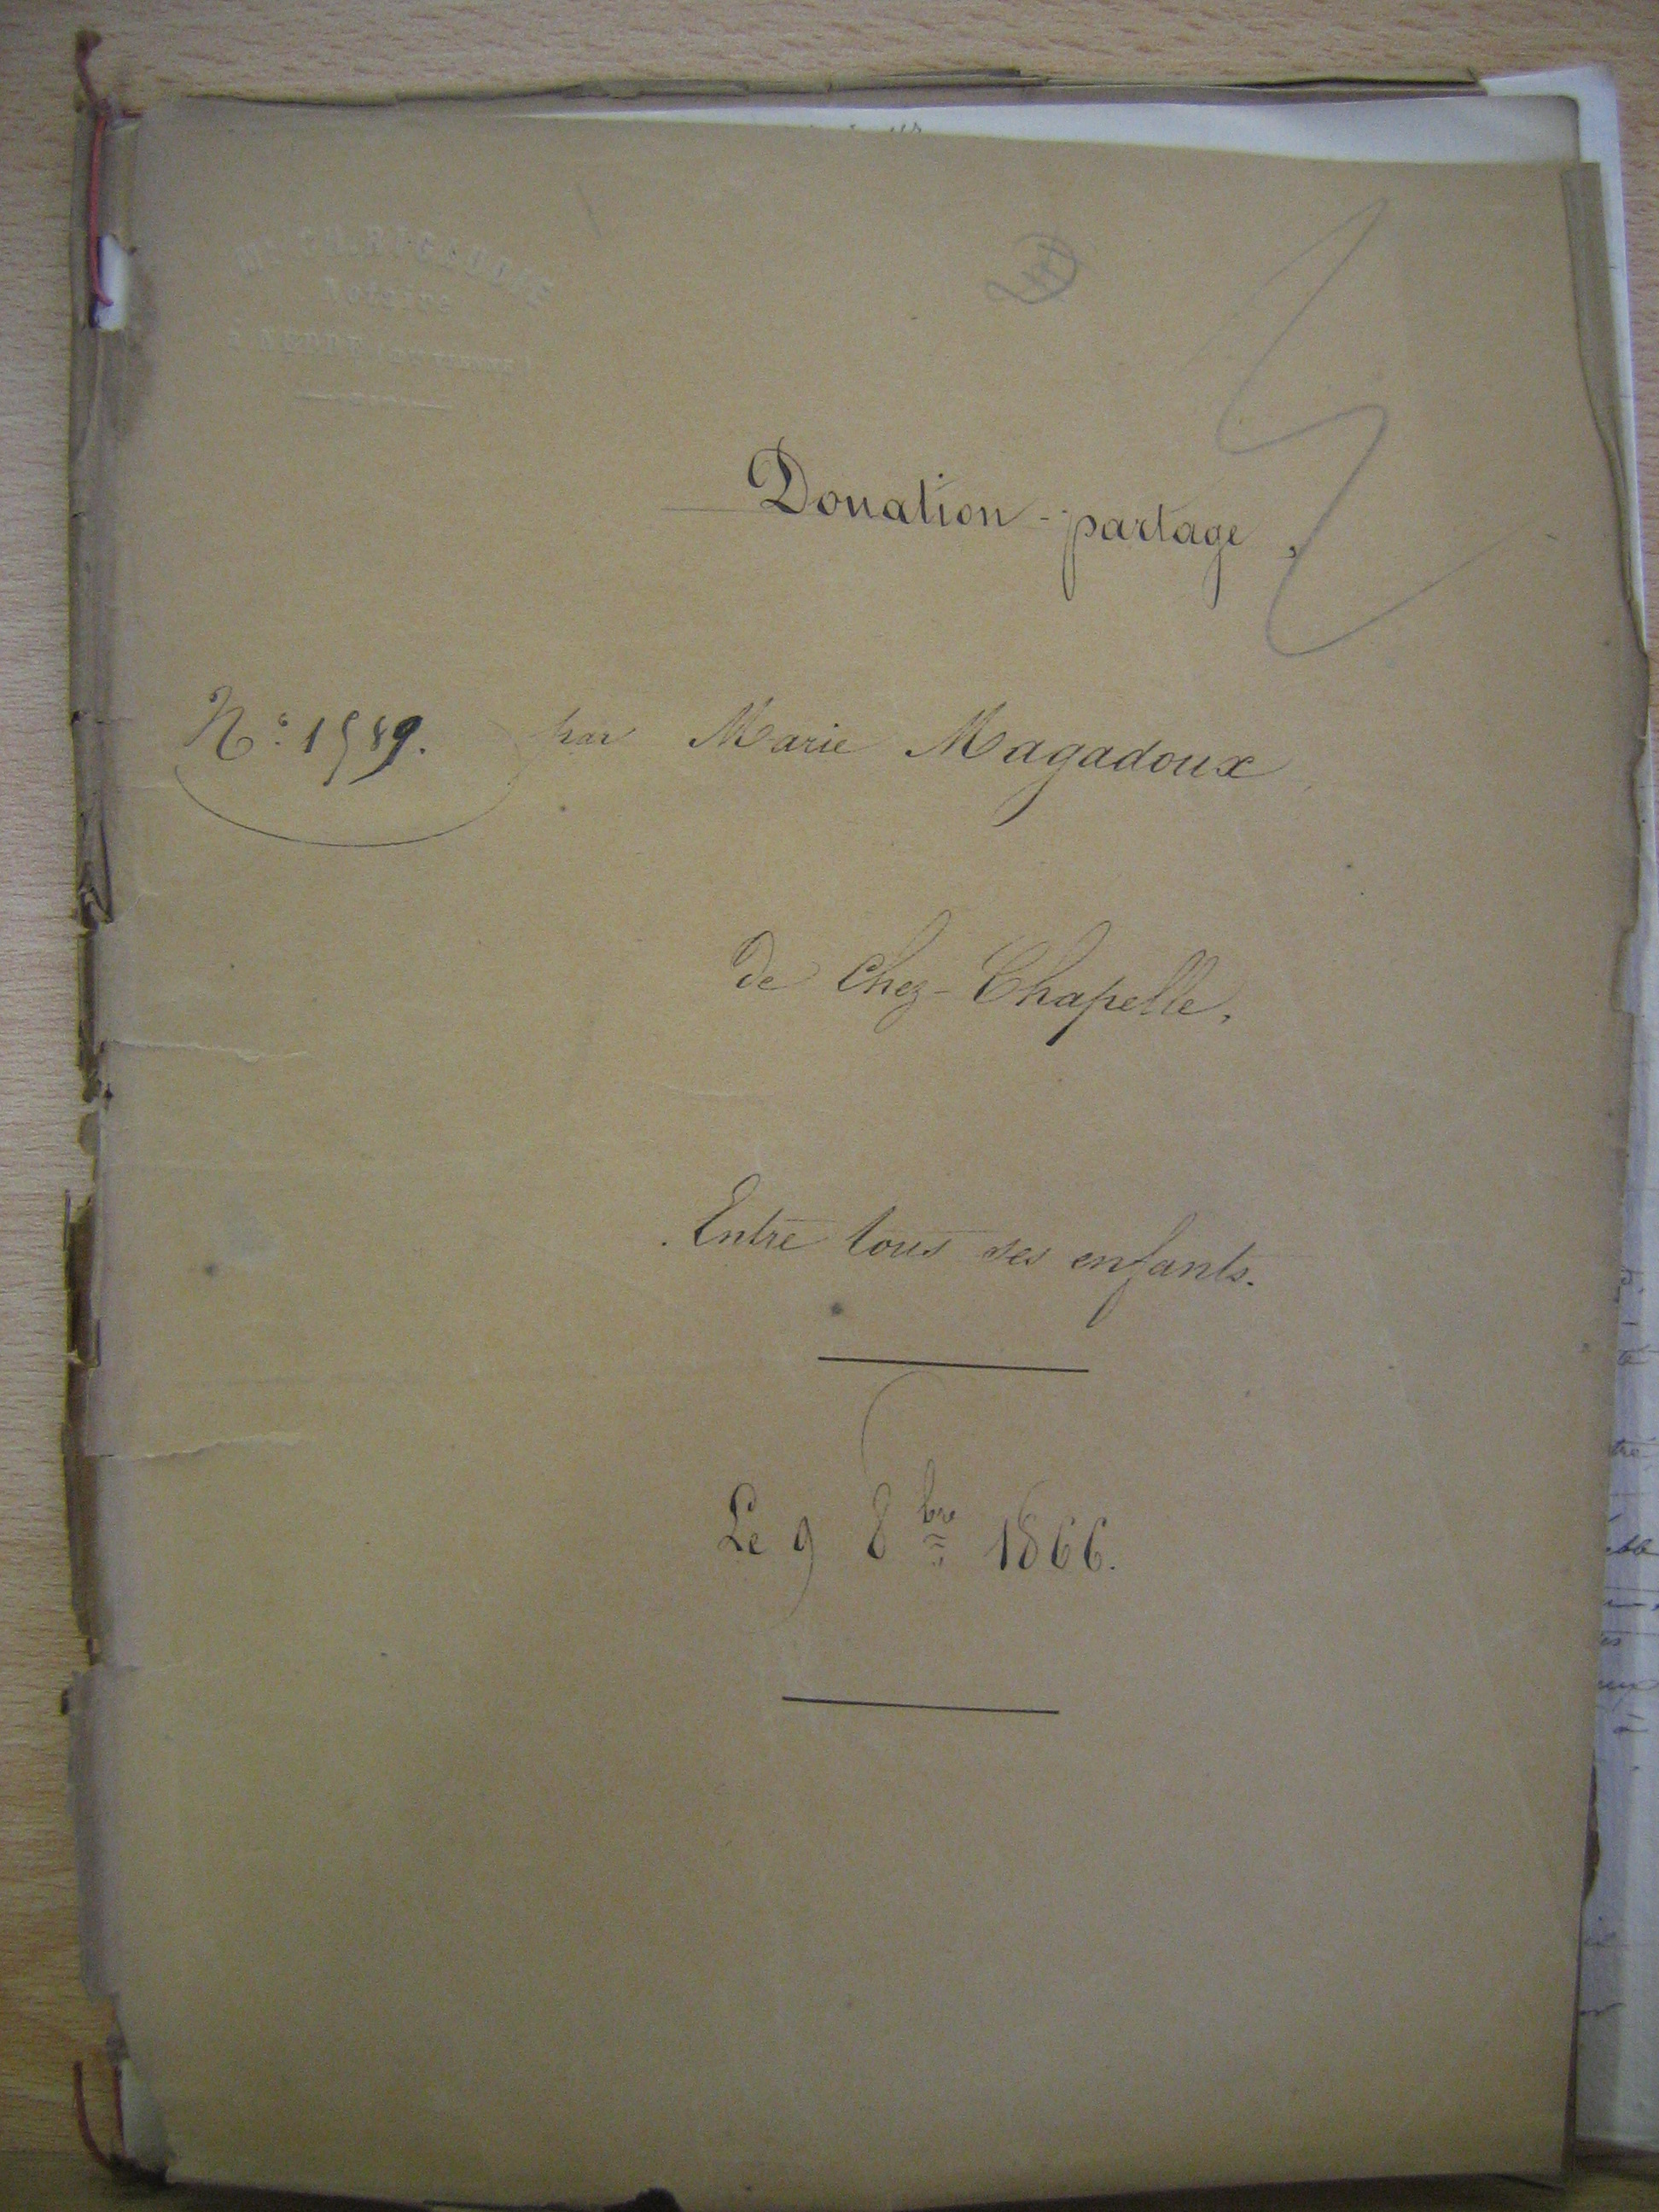 Notaire
Donation-partage,
N°: 1559. par Marie Mazgadoux
De chez-Chapelle,
Entre tous ses enfants.
Le 9 8bre 1866.